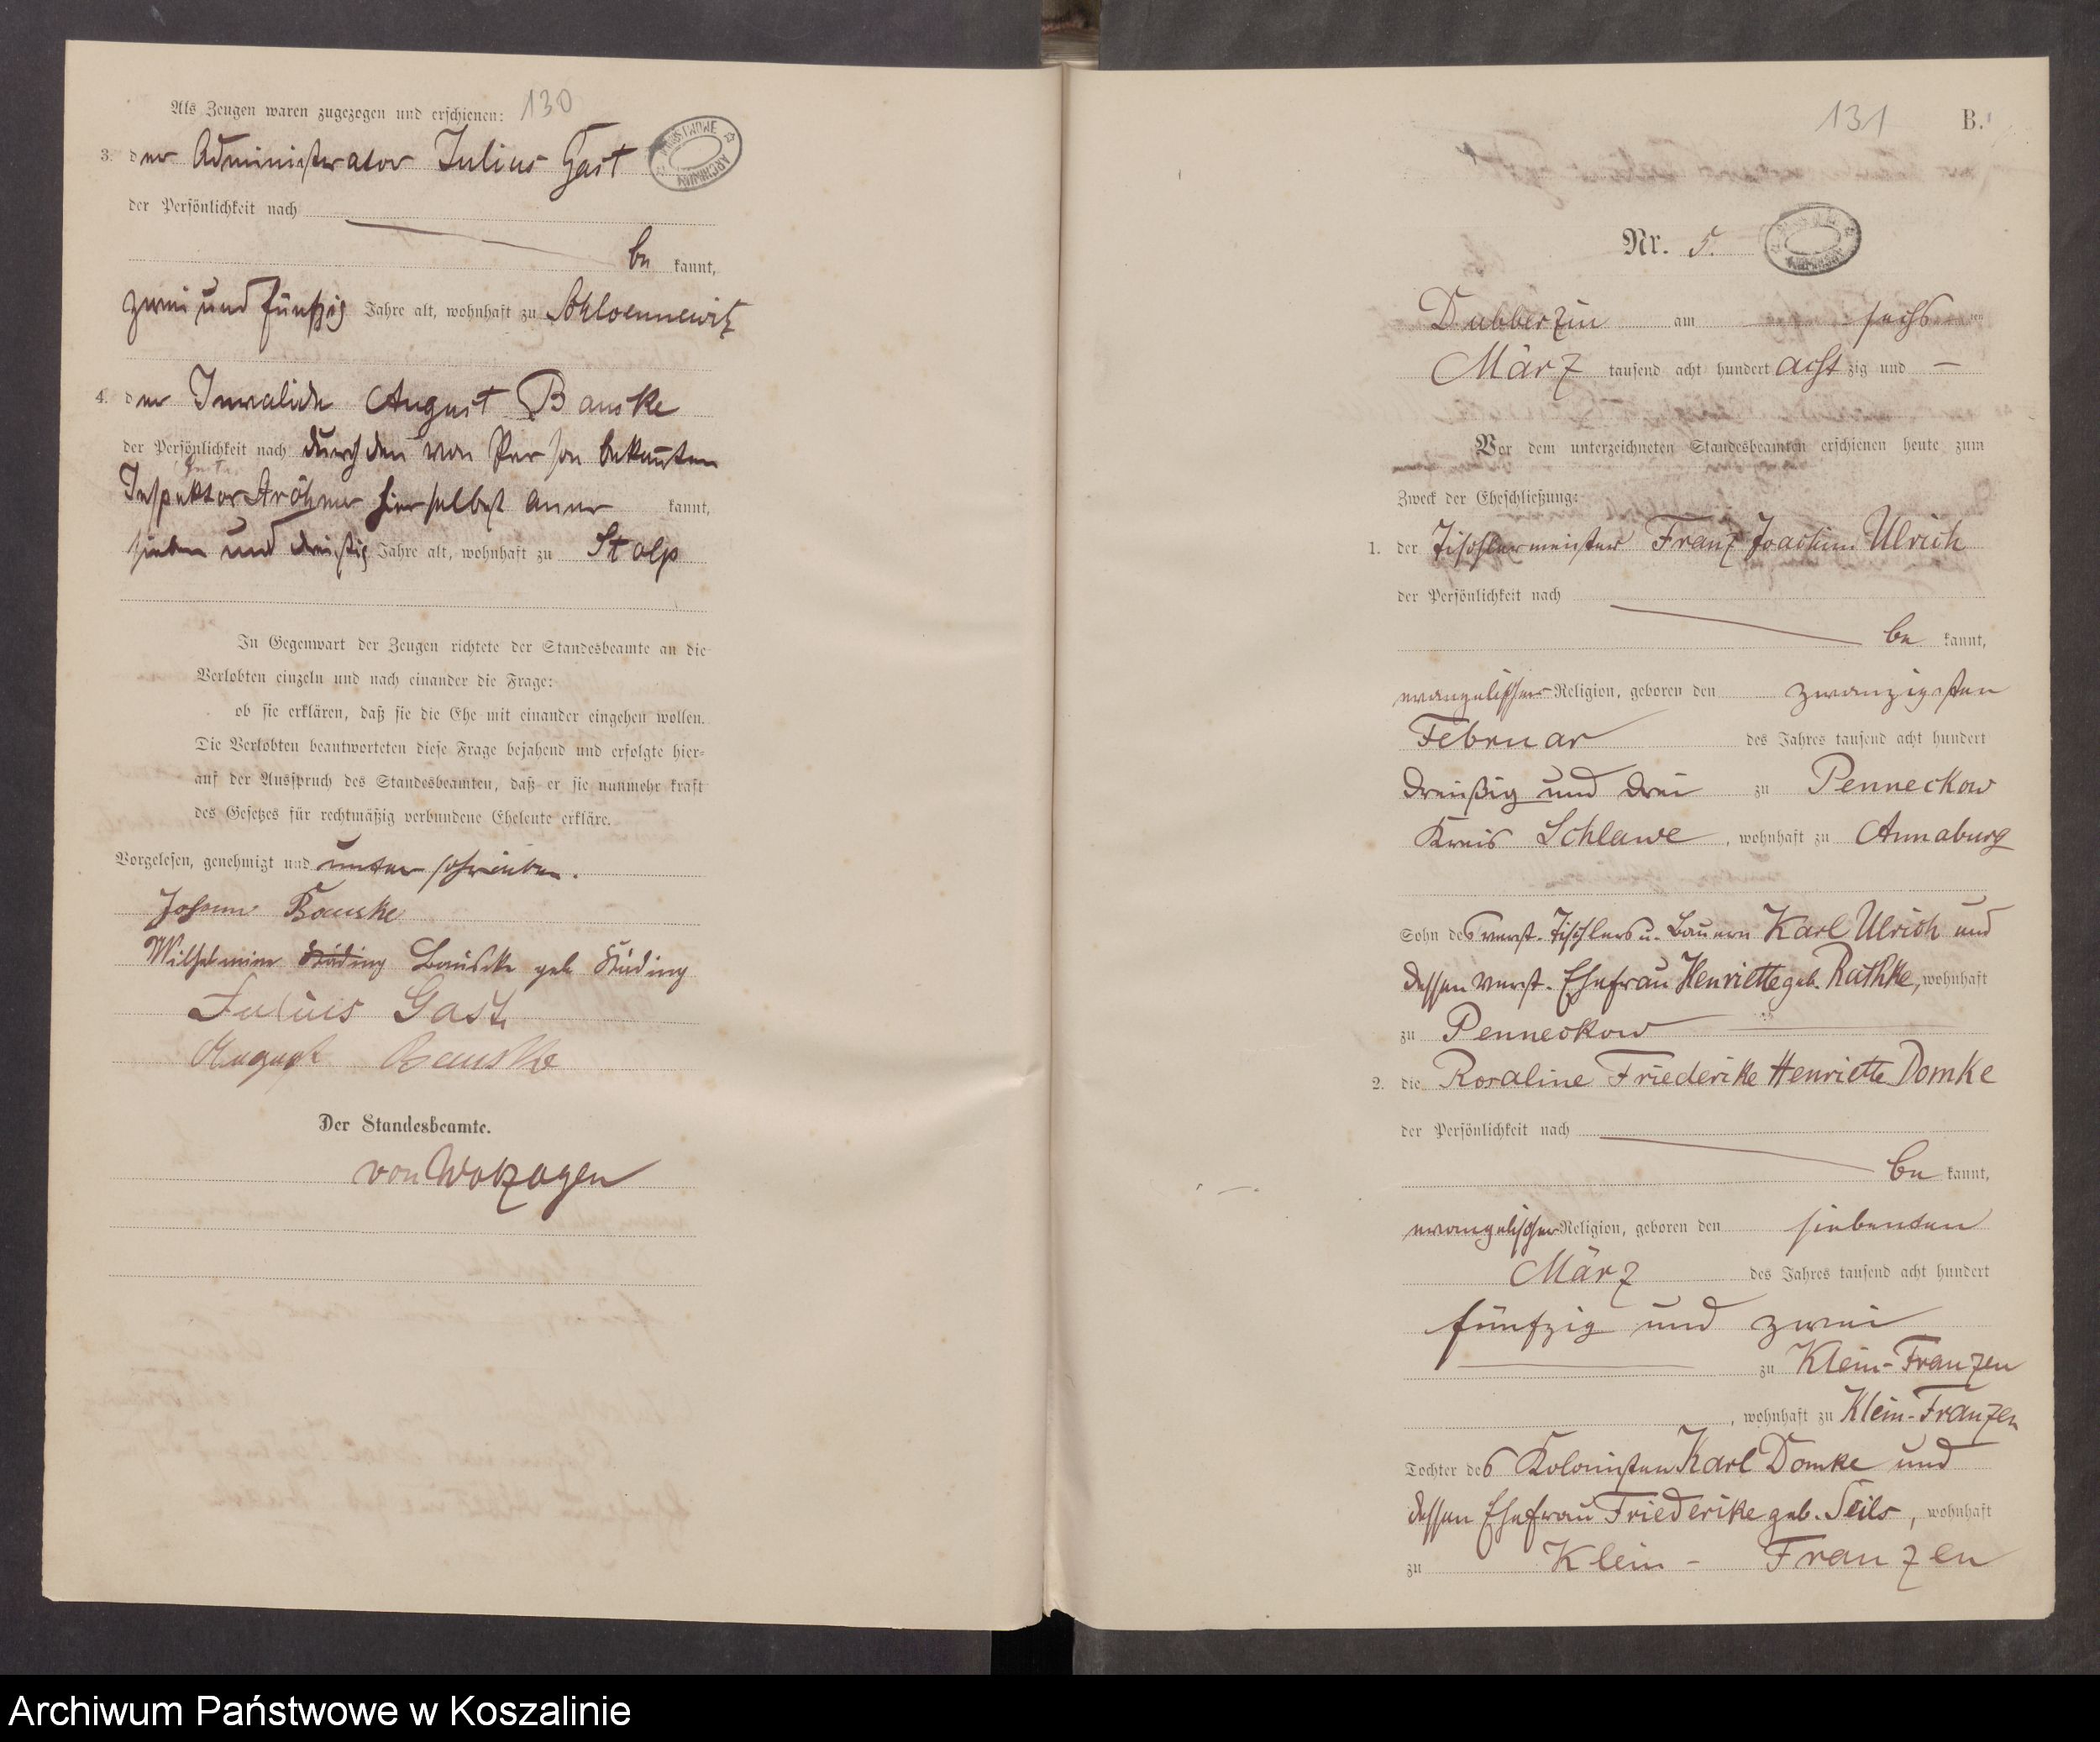 130
Als Zeugen waren zugezogen und erschienen:
3. der Administrator Julius Gast
der Persönlichkeit nach
be kannt,
zwei und fünfzig Jahre alt, wohnhaft zu Schloennewitz
4. der Invalide August Bauske
der Persönlichkeit nach durch den von Person bekannten
Inspektor hierselbst aner kannt,
sieben und dreißig Jahre alt, wohnhaft zu Stolp
In Gegenwart der Zeugen richtete der Standesbeamte an die
Verlobten einzeln und nach einander die Frage:
ob sie erklären, daß sie die Ehe mit einander eingehen wollen.
Die Verlobten beantworteten diese Frage bejahend und erfolgte hier-
auf der Ausspruch des Standesbeamten, daß er sie nunmehr kraft
des Gesetzes für rechtmäßig verbundene Eheleute erkläre.
Vorgelesen, genehmigt und unterschrieben.
Johann Bauske
Wilhelmine Küding Bauske geb Küding
Julius Gast
August Bauske
Der Standesbeamte.
von Wolzogen
131 B.
Nr. 5.
Dubberzin am sechsten
März tausend acht hundert acht zig und –
Vor dem unterzeichneten Standesbeamten erschienen heute zum
Zweck der Eheschließung:
1. der Tischlermeister Franz Joachim Ulrich
der Persönlichkeit nach
be kannt,
evangelischer Religion, geboren den zwanzigsten
Februar des Jahres tausend acht hundert
dreißig und drei zu Penneckow
Kreis Schlawe, wohnhaft zu Annaburg
Sohn des verst. Tischlers u. Bauern Karl Ulrich und
dessen verst. Ehefrau Henriette geb. Rathke, wohnhaft
zu Penneckow
2. die Rosaline Friederike Henriette Domke
der Persönlichkeit nach
be kannt,
evangelischer Religion, geboren den siebenten
März des Jahres tausend acht hundert
fünfzig und zwei
zu Klein-Franzen
, wohnhaft zu Klein-Franzen
Tochter des Kolonisten Karl Domke und
dessen Ehefrau Friederike geb. Seils, wohnhaft
zu Klein-Franzen
Archiwum Państwowe w Koszalinie